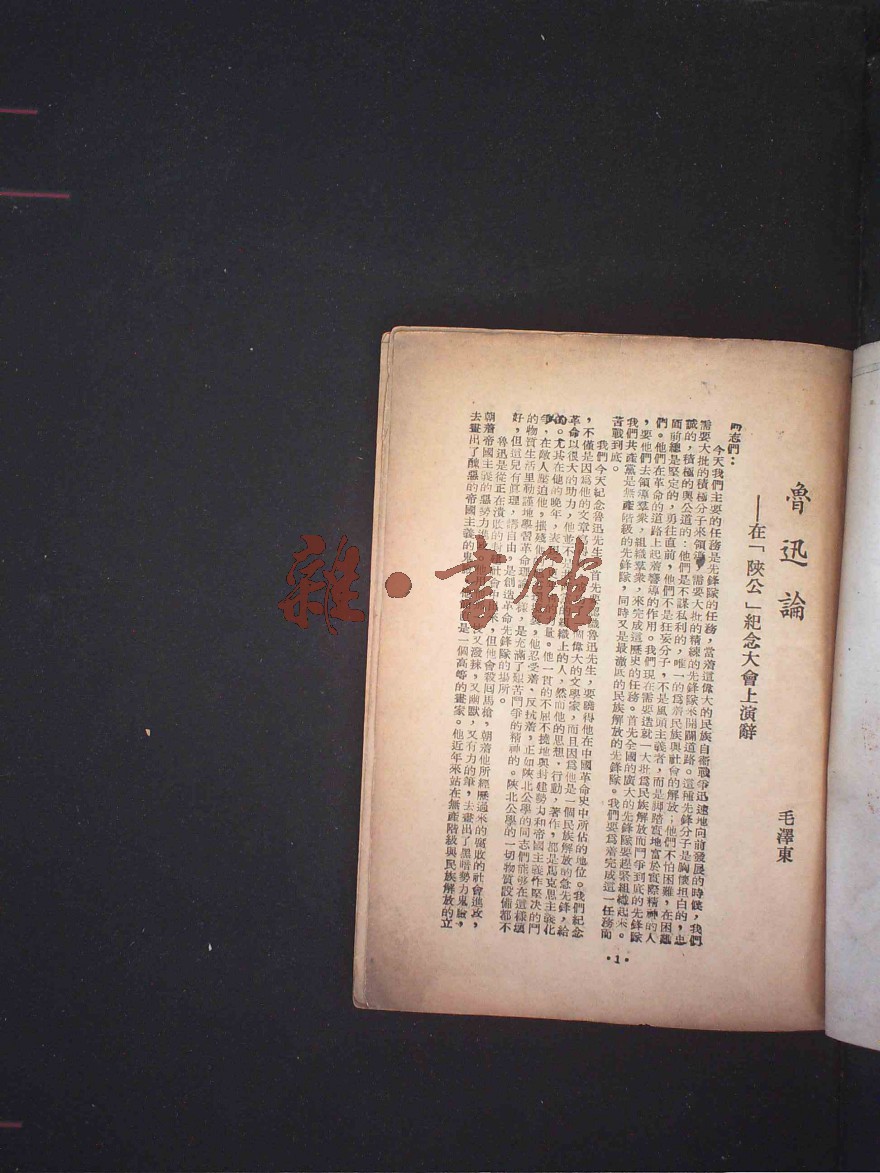 魯迅論
——在「陝公」紀念大會上演辭
毛澤東
同志們：
今天我們主要的任務是先鋒隊的任務，當着這偉大的民族自衞戰爭迅速地向前發展的時候，我們
需要大批的積極分子來領導，需要大批的精練的先鋒隊來開闢道路。這種先鋒分子是胸懷坦白的，忠
誠的，積極的與公道的；他們是不謀私利的，唯一的爲着民族與社會的解放；他們不怕困難，在困難
面前總是堅定的，勇往直前，他們不是狂妄分子，不是風頭主義者，而是脚踏實地富於實際精神的人
們。他們在革命的道路上起着嚮導的作用。我們現在需要造就一大批爲民族解放而鬥爭到底的先鋒隊
，要他們去領導羣衆，組織羣衆，來完成這歷史的任務。首先全國的廣大的先鋒隊要趕緊組織起來。
我們共產黨是無產階級的先鋒隊，同時又是最澈底的民族解放的先鋒隊。我們要爲着完成這一任務而
苦戰到底。
我們今天紀念魯迅先生，首先要認識魯迅先生，要曉得他在中國革命史中所佔的地位。我們紀念
，不僅是因爲他的文章 偉大的文學家，而且因爲他是一個民族解放的急先鋒，給
革命以很大的助力，他並不 組織上的人，然而他的思想，行動，著作，都是馬克思主義化
的。尤其在他的晚年，表 量。他一貫的不屈不撓地與封建勢力和帝國主義作堅决的鬥
爭，在敵人壓迫他，摧殘他 ，他忍受着，反抗着，正如陝北公學的同志們能够在這樣壞
的物質生活里勤謹地學習革命理論 樣，是充滿了艱苦鬥爭的精神的。陝北公學的一切物質設備都不
好，但這兒有眞理，講自由，是創造革命先鋒隊的場所。
魯迅是從正在潰敗的封建社會中出來，但他會殺回馬槍，朝着他所經歷過來的腐敗的社會進攻，
朝着帝國主義的惡勢力進 又潑辣，又幽默，又有力的筆，去畫出了黑暗勢力鬼臉，
去畫出了醜惡的帝國主義的鬼 是一個高等的畫家。他近年來站在無產階級與民族解放的立
·1·
雜·書館